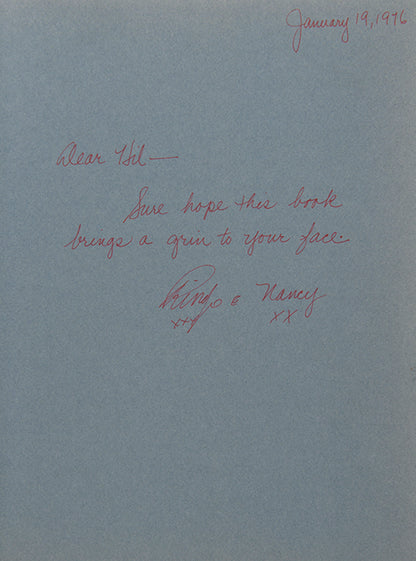 January 19, 1976
Dear Hil—
Sure hope this book
brings a grin to your face.
Ringo & Nancy
xxx XX